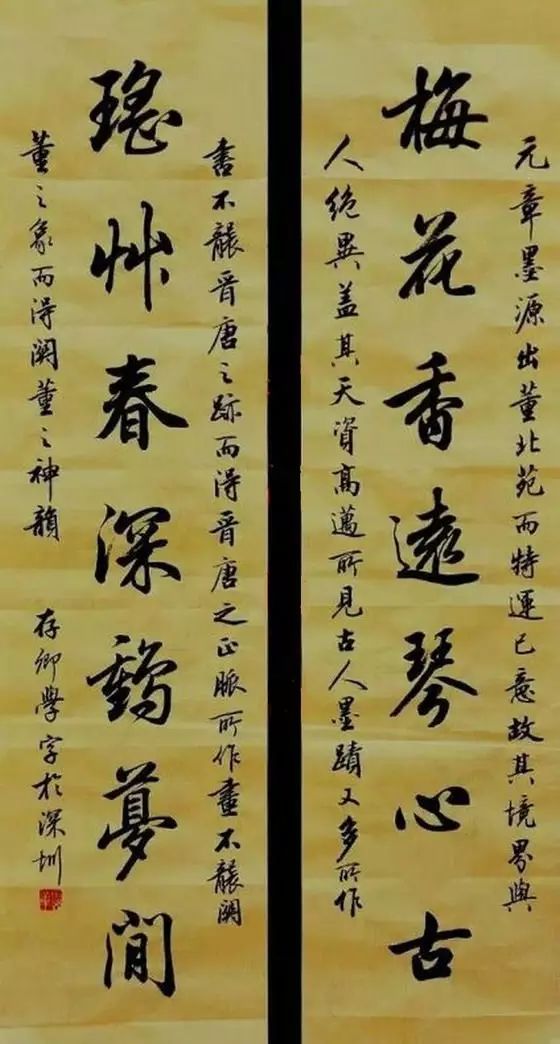 元章墨源出董北苑而特運己意故其境界與
梅花香遠琴心古
人絶異蓋其天資高邁所見古人墨蹟又多所作
書不襲晉唐之跡而得晉唐之正脈所作畫不襲關
瑤艸春深鶴夢閒
董之象而得關董之神韻
存卿學字於深圳